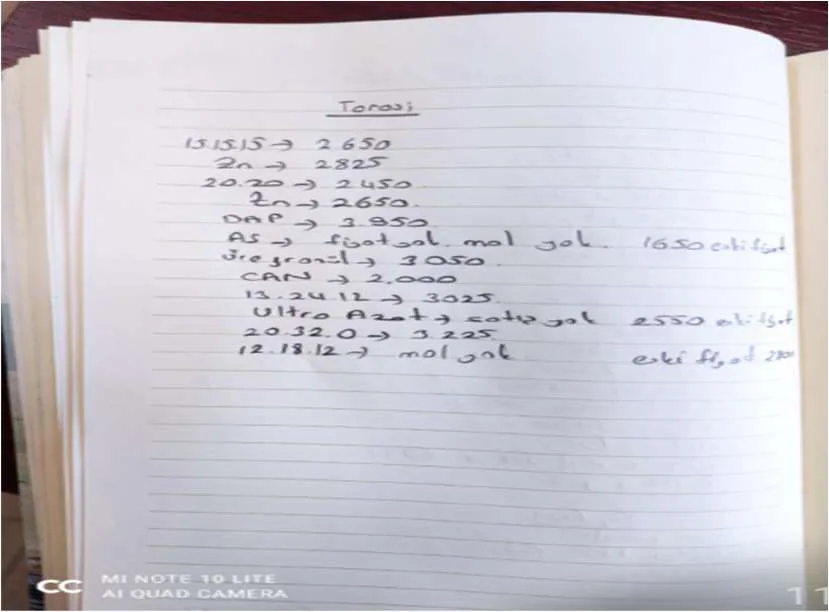 Torosi
15.15.15 → 2650
Zn → 2825
20.20 → 2450
Zn → 2650.
DAP → 3.950
AS → fiyat yok. mal yok. 1650 eski fiyat
Üre granül → 3050
CAN → 2.000
13.24.12 → 3025
Ultra Azot → satış yok 2550 eski fiyat
20.32.0 → 3.225
12.18.12 → mal yok eski fiyat 2800
CC MI NOTE 10 LITE
AI QUAD CAMERA
11